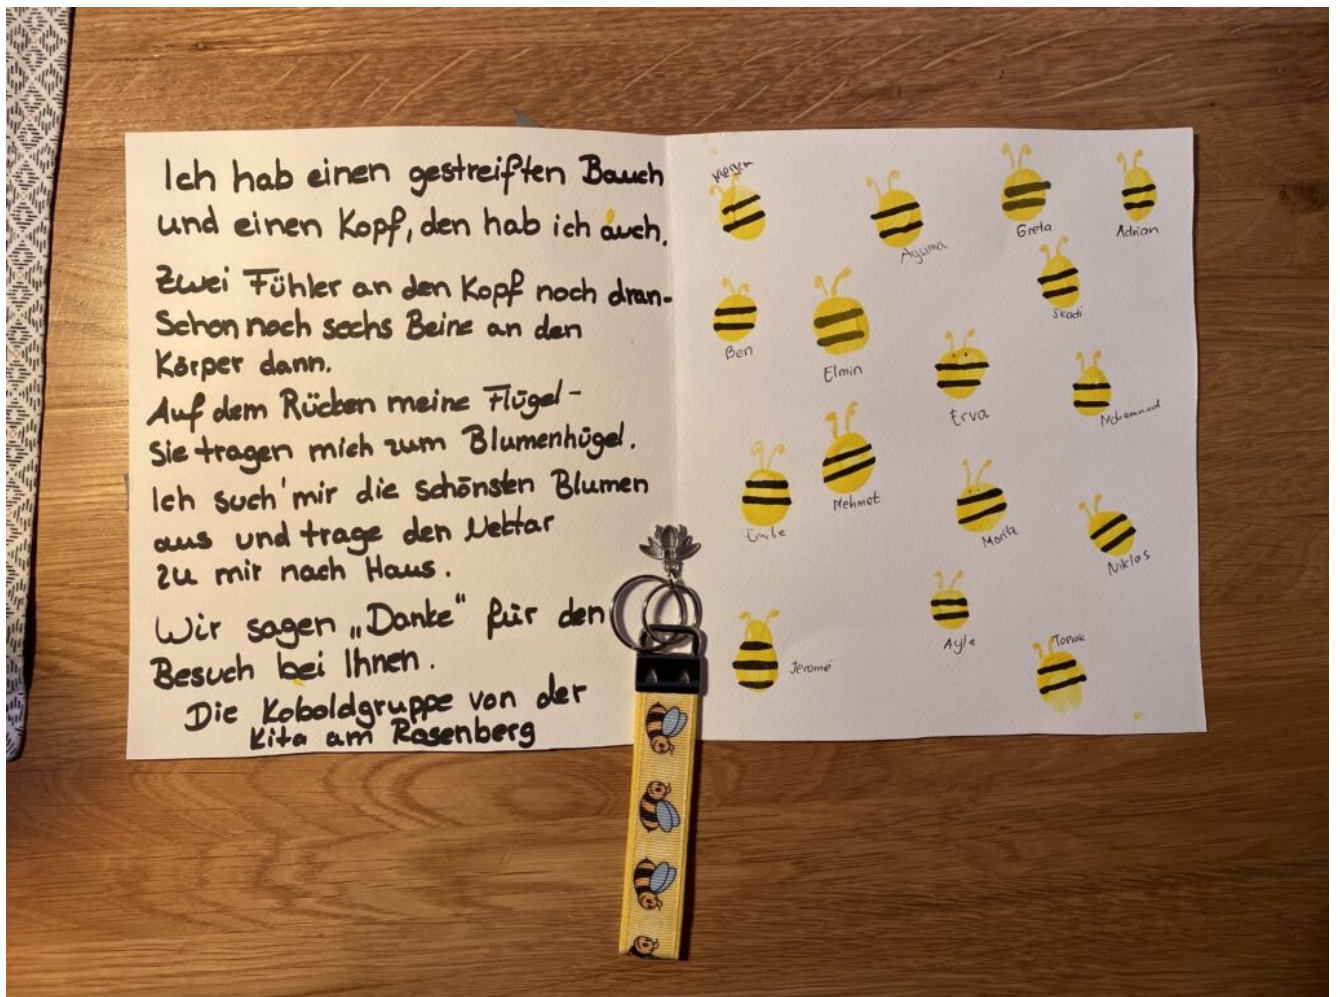 Ich hab einen gestreiften Bauch
und einen Kopf, den hab ich auch.
Zwei Fühler an den Kopf noch dran-
Schon noch sechs Beine an den
Körper dann.
Auf dem Rücken meine Flügel-
Sie tragen mich zum Blumenhügel.
Ich such' mir die schönsten Blumen
aus und trage den Nektar
zu mir nach Haus.
Wir sagen „Danke“ für den
Besuch bei Ihnen.
Die Koboldgruppe von der
Kita am Rosenberg
Greta
Adrian
Skadi
Ben
Elmin
Erva
Mohammad
Mehmet
Emilie
Moritz
Niklas
Ayla
Toprak
Jeromé